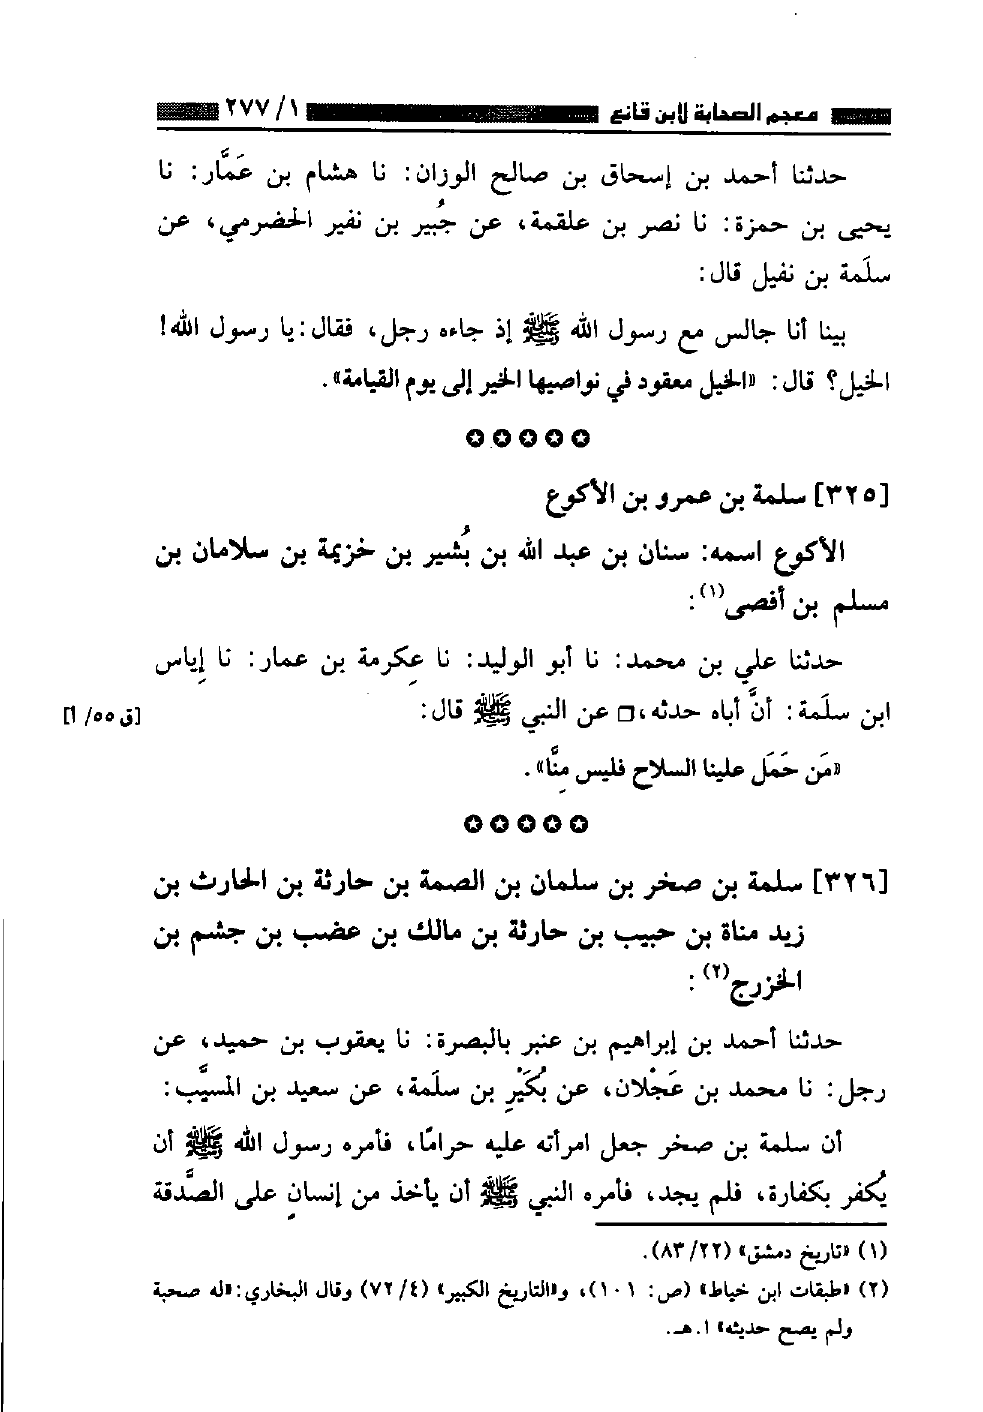 معجم الصحابة لابن قانع ٢٧٧/١
حدثنا أحمد بن إسحاق بن صالح الوزان: نا هشام بن عَمَّار: نا
يحيى بن حمزة: نا نصر بن علقمة، عن جُبير بن نفير الحضرمي، عن
سلَمة بن نفيل قال:
بينا أنا جالس مع رسول الله ﷺ إذ جاءه رجل، فقال: يا رسول الله!
الخيل؟ قال: «الخيل معقود في نواصيها الخير إلى يوم القيامة».
✪ ✪ ✪ ✪ ✪
[٣٢٥] سلمة بن عمرو بن الأكوع
الأكوع اسمه: سنان بن عبد الله بن بُشير بن خزيمة بن سلامان بن
مسلم بن أفصى(١):
حدثنا علي بن محمد: نا أبو الوليد: نا عِكرمة بن عمار: نا إِياس
ابن سلَمة: أنَّ أباه حدثه،□ عن النبي ﷺ قال: [ق ٥٥/أ]
«مَن حَمَل علينا السلاح فليس مِنَّا».
✪ ✪ ✪ ✪ ✪
[٣٢٦] سلمة بن صخر بن سلمان بن الصمة بن حارثة بن الحارث بن
زيد مناة بن حبيب بن حارثة بن مالك بن عضب بن جشم بن
الخزرج(٢):
حدثنا أحمد بن إبراهيم بن عنبر بالبصرة: نا يعقوب بن حميد، عن
رجل: نا محمد بن عَجْلان، عن بُكَيْرِ بن سلَمة، عن سعيد بن المسيَّب:
أن سلمة بن صخر جعل امرأته عليه حرامًا، فأمره رسول الله ﷺ أن
يُكفر بكفارة، فلم يجد، فأمره النبي ﷺ أن يأخذ من إنسانٍ على الصَّدقة
(١) «تاريخ دمشق» (٨٣/٢٢).
(٢) «طبقات ابن خياط» (ص: ١٠١)، و«التاريخ الكبير» (٧٢/٤) وقال البخاري: «له صحبة
ولم يصح حديثه» ا.هـ.